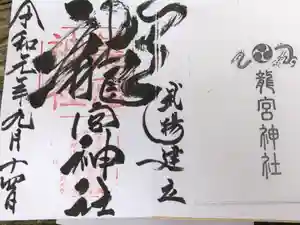 龍宮神社
武揚建立
龍宮神社
令和元年九月十四日